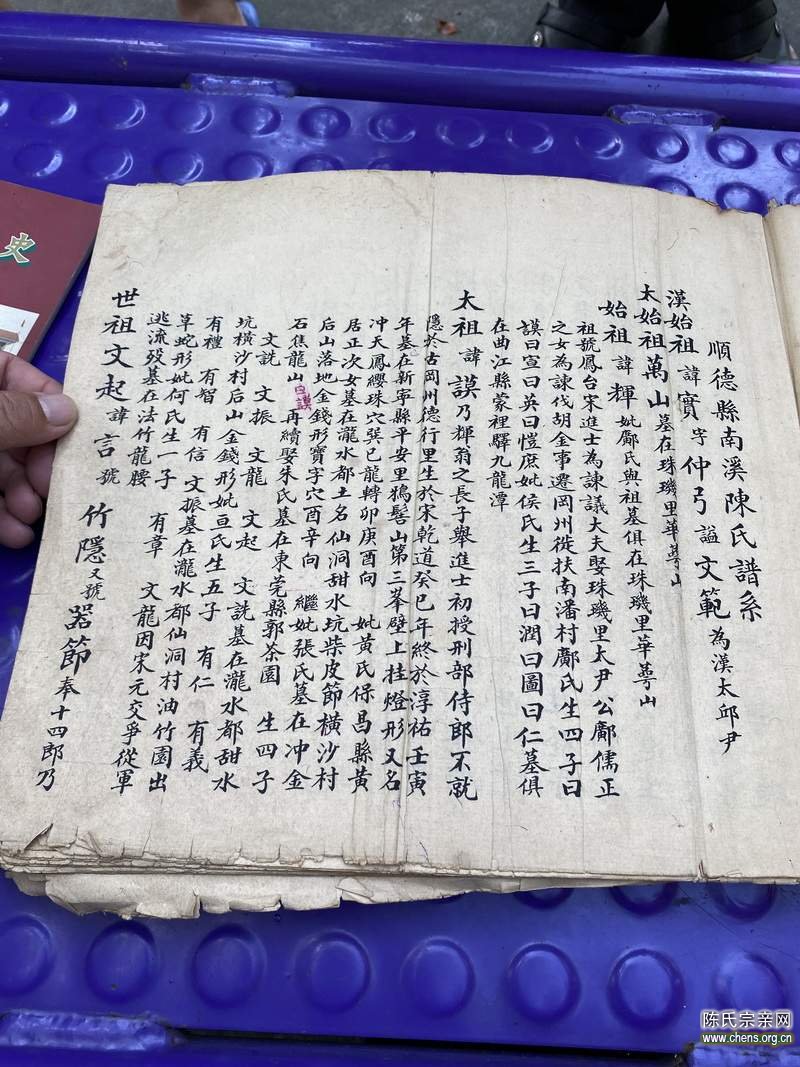 順德縣南溪陳氏譜系
漢始祖諱實字仲弓謚文範為漢太邱尹
太始祖萬山墓在珠璣里華萼山
始祖諱輝妣鄺氏與祖墓俱在珠璣里華萼山
祖號鳳台宋進士為諫議大夫娶珠璣里太尹公鄺儒正
之女為諫伐胡金事遷岡州徙扶南潘村鄺氏生四子曰
謨曰宣曰英曰愷庶妣侯氏生三子曰潤曰圖曰仁墓俱
在曲江縣蒙裡驛九龍潭
太祖諱謨乃輝翁之長子舉進士初授刑部侍郎不就
隱於古岡州德行里生於宋乾道癸巳年終於淳祐壬寅
年墓在新寧縣平安里鴉髻山第三峯壁上挂燈形又名
冲天鳳纓珠穴巽巳龍轉卯庚酉向 妣黃氏保昌縣黃
居正次女墓在瀧水都土名仙洞甜水坑柴皮節橫沙村
后山落地金錢形寶字穴酉辛向 繼妣張氏墓在冲金
石焦龍山 再續娶朱氏墓在東莞縣郭茶園 生四子
文詵 文振 文龍 文起 文詵墓在瀧水都甜水
坑橫沙村后山金錢形妣亘氏生五子 有仁 有義
有禮 有智 有信 文振墓在瀧水都仙洞村油竹園出
草蛇形妣何氏生一子 有章 文龍因宋元交爭從軍
逃流發墓在法竹龍腰
世祖文起諱言號竹隱又號器節奉十四郎乃
史
陈氏宗亲网
www.chens.org.cn